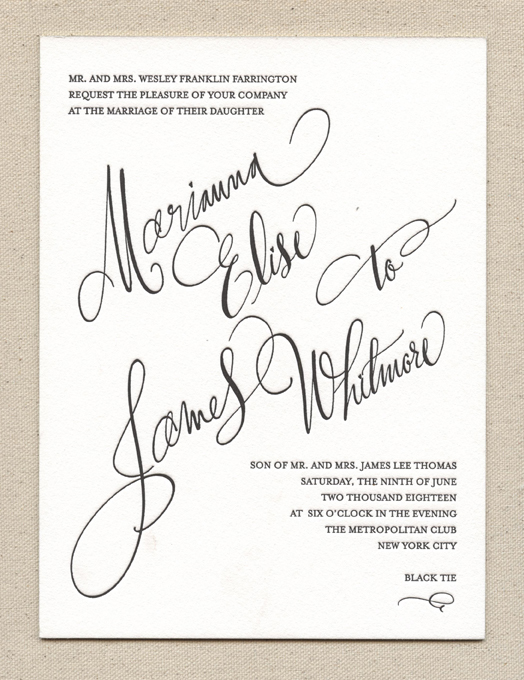 MR. AND MRS. WESLEY FRANKLIN FARRINGTON
REQUEST THE PLEASURE OF YOUR COMPANY
AT THE MARRIAGE OF THEIR DAUGHTER
Marianna
Elise to
James Whitmore
SON OF MR. AND MRS. JAMES LEE THOMAS
SATURDAY, THE NINTH OF JUNE
TWO THOUSAND EIGHTEEN
AT SIX O'CLOCK IN THE EVENING
THE METROPOLITAN CLUB
NEW YORK CITY
BLACK TIE